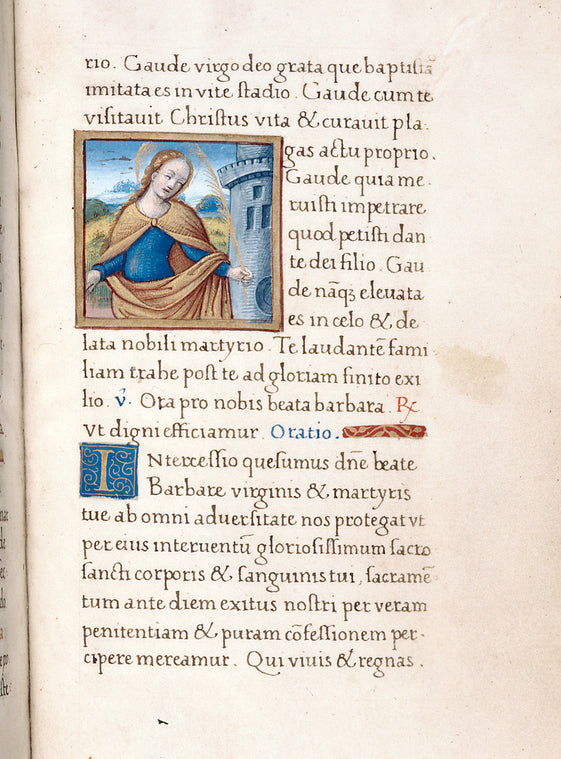 rio. Gaude virgo deo grata que baptistā
imitata es in vite stadio. Gaude cum te
visitauit Christus vita & curauit pla-
gas actu proprio.
Gaude quia me-
ruisti impetrare
quod petisti dan-
te dei filio. Gau-
de nāqȝ eleuata
es in celo & de-
lata nobili martyrio. Te laudantē fami-
liam trahe post te ad gloriam finito exi-
lio. v̇. Ora pro nobis beata barbara. ℞
Vt digni efficiamur. Oratio.
INtercessio quesumus dn̄e beate
Barbare virginis & martyris
tue ab omni aduersitate nos protegat vt
per eius interuentū gloriosissimum sacro-
sancti corporis & sanguinis tui, sacramē-
tum ante diem exitus nostri per veram
penitentiam & puram cōfessionem per-
cipere mereamur. Qui viuis & regnas.